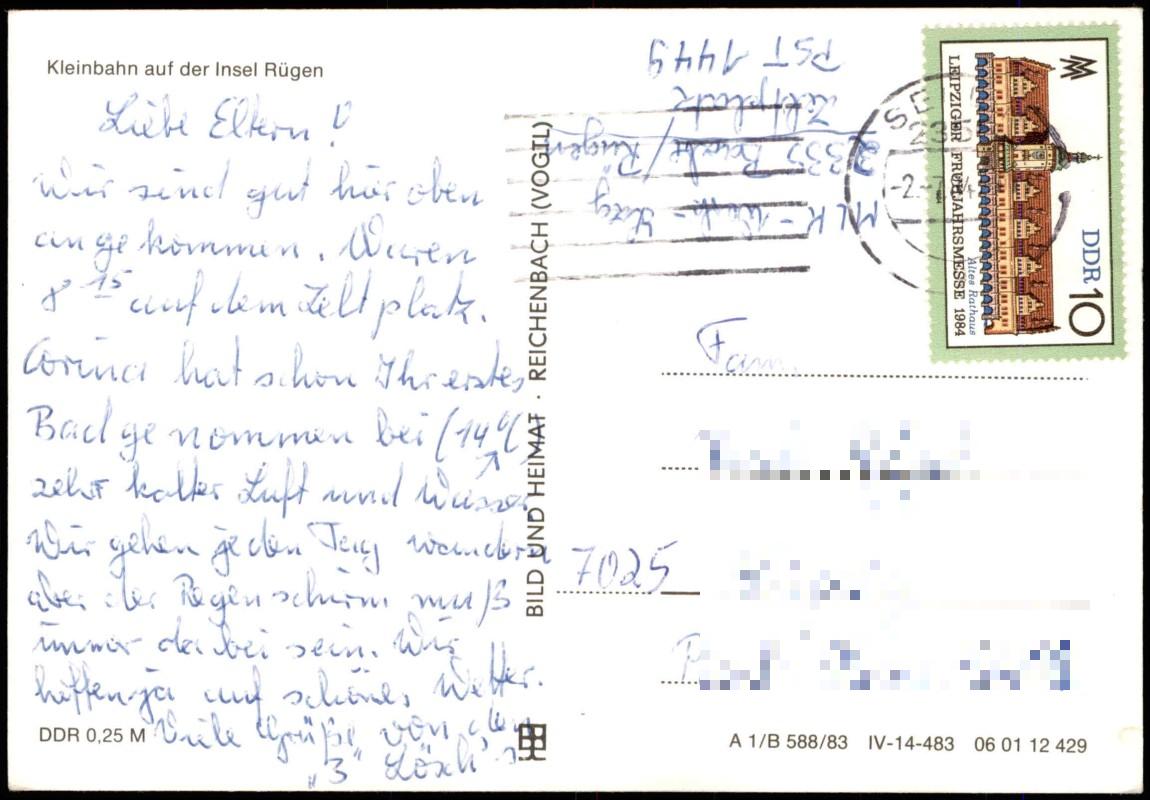 Kleinbahn auf der Insel Rügen
Liebe Eltern!
Wir sind gut hier oben
angekommen. Waren
8 15 auf dem Zeltplatz.
Corina hat schon Ihr erstes
Bad genommen bei (14°C)
sehr kalter Luft und Wasser
Wir gehen jeden Tag wandern
aber der Regenschirm muß
immer dabei sein. Wir
hoffen ja auf schönes Wetter.
Viele Grüße von den
"3" Lösch's
DDR 0,25 M
BILD UND HEIMAT · REICHENBACH (VOGTL)
PST 1449
Zeltplatz
Rügen
Fam.
7025
LEIPZIGER FRÜHJAHRSMESSE 1984
Altes Rathaus
DDR 10
A 1/B 588/83 IV-14-483 06 01 12 429